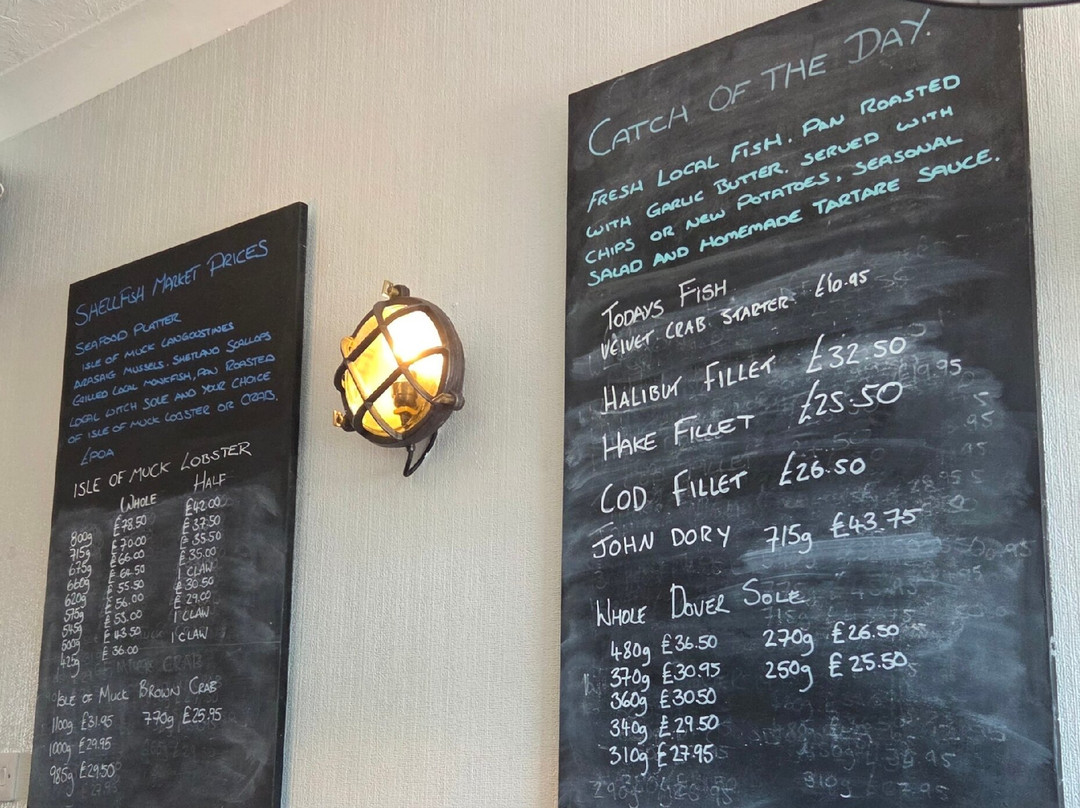 SHELLFISH MARKET PRICES
SEAFOOD PLATTER
ISLE OF MUCK LANGOUSTINES
ARASAIG MUSSELS. SHETLAND SCALLOPS
GRILLED LOCAL MONKFISH, PAN ROASTED
LOCAL WITCH SOLE AND YOUR CHOICE
OF ISLE OF MUCK LOBSTER OR CRAB.
£POA
ISLE OF MUCK LOBSTER
WHOLE HALF
800g £78.50 £42.00
715g £70.00 £37.50
675g £66.00 £35.50
660g £64.50 £35.00
620g £55.50 1 CLAW
575g £56.00 £30.50
545g £53.00 £29.00
500g £43.50 1 CLAW
425g £36.00 1 CLAW
ISLE OF MUCK BROWN CRAB
1100g £31.95 770g £25.95
1000g £29.95
985g £29.50
CATCH OF THE DAY.
FRESH LOCAL FISH. PAN ROASTED
WITH GARLIC BUTTER. SERVED WITH
CHIPS OR NEW POTATOES, SEASONAL
SALAD AND HOMEMADE TARTARE SAUCE.
TODAYS FISH
VELVET CRAB STARTER £10.95
HALIBUT FILLET £32.50
HAKE FILLET £25.50
COD FILLET £26.50
JOHN DORY 715g £43.75
WHOLE DOVER SOLE
480g £36.50 270g £26.50
370g £30.95 250g £25.50
360g £30.50
340g £29.50
310g £27.95